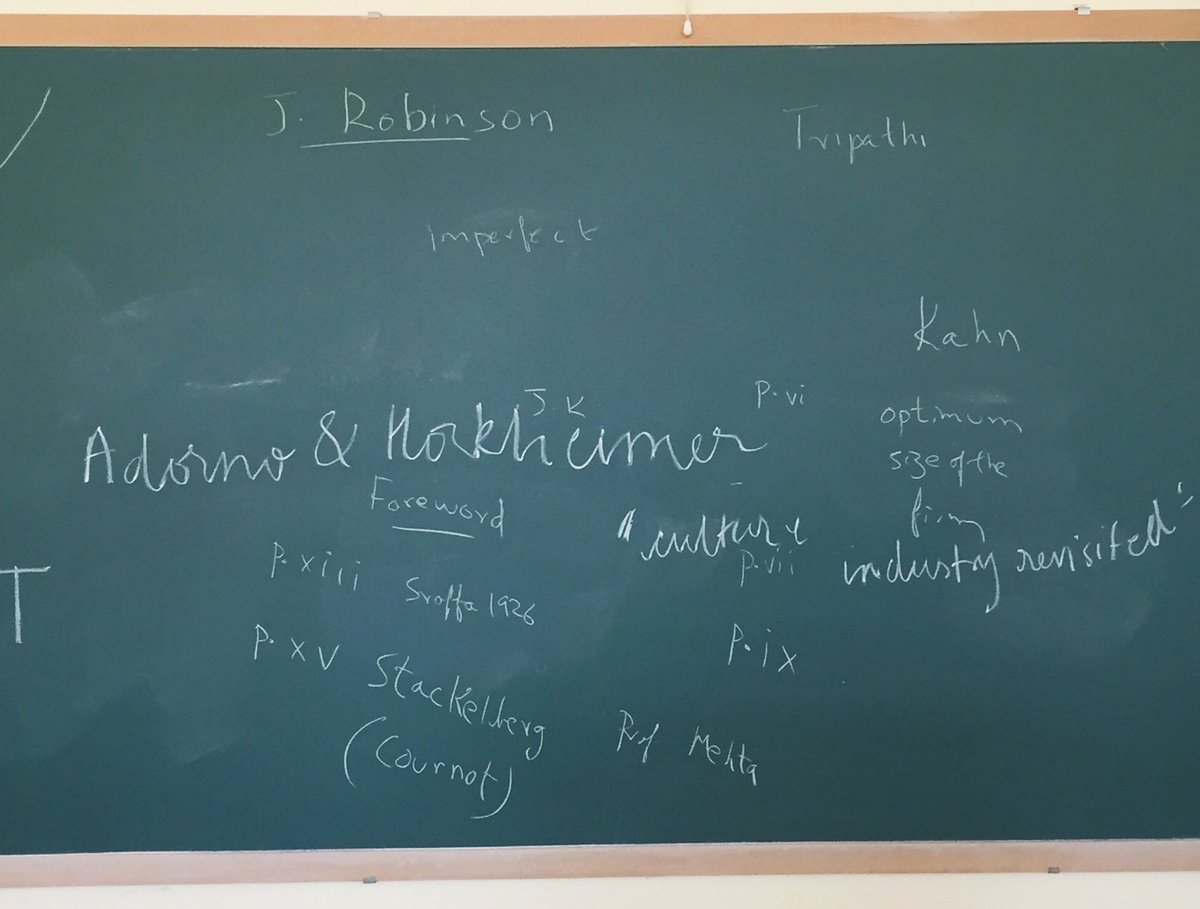 J. Robinson
Tripathi
imperfect
Kahn
J. K
P. vi
optimum
size of the
firm
Adorno & Horkheimer
Foreword
"culture
industry revisited"
P. vii
P. xiii
Sraffa 1926
P. ix
P. xv
Stackelberg
(Cournot)
Prof Mehta
T